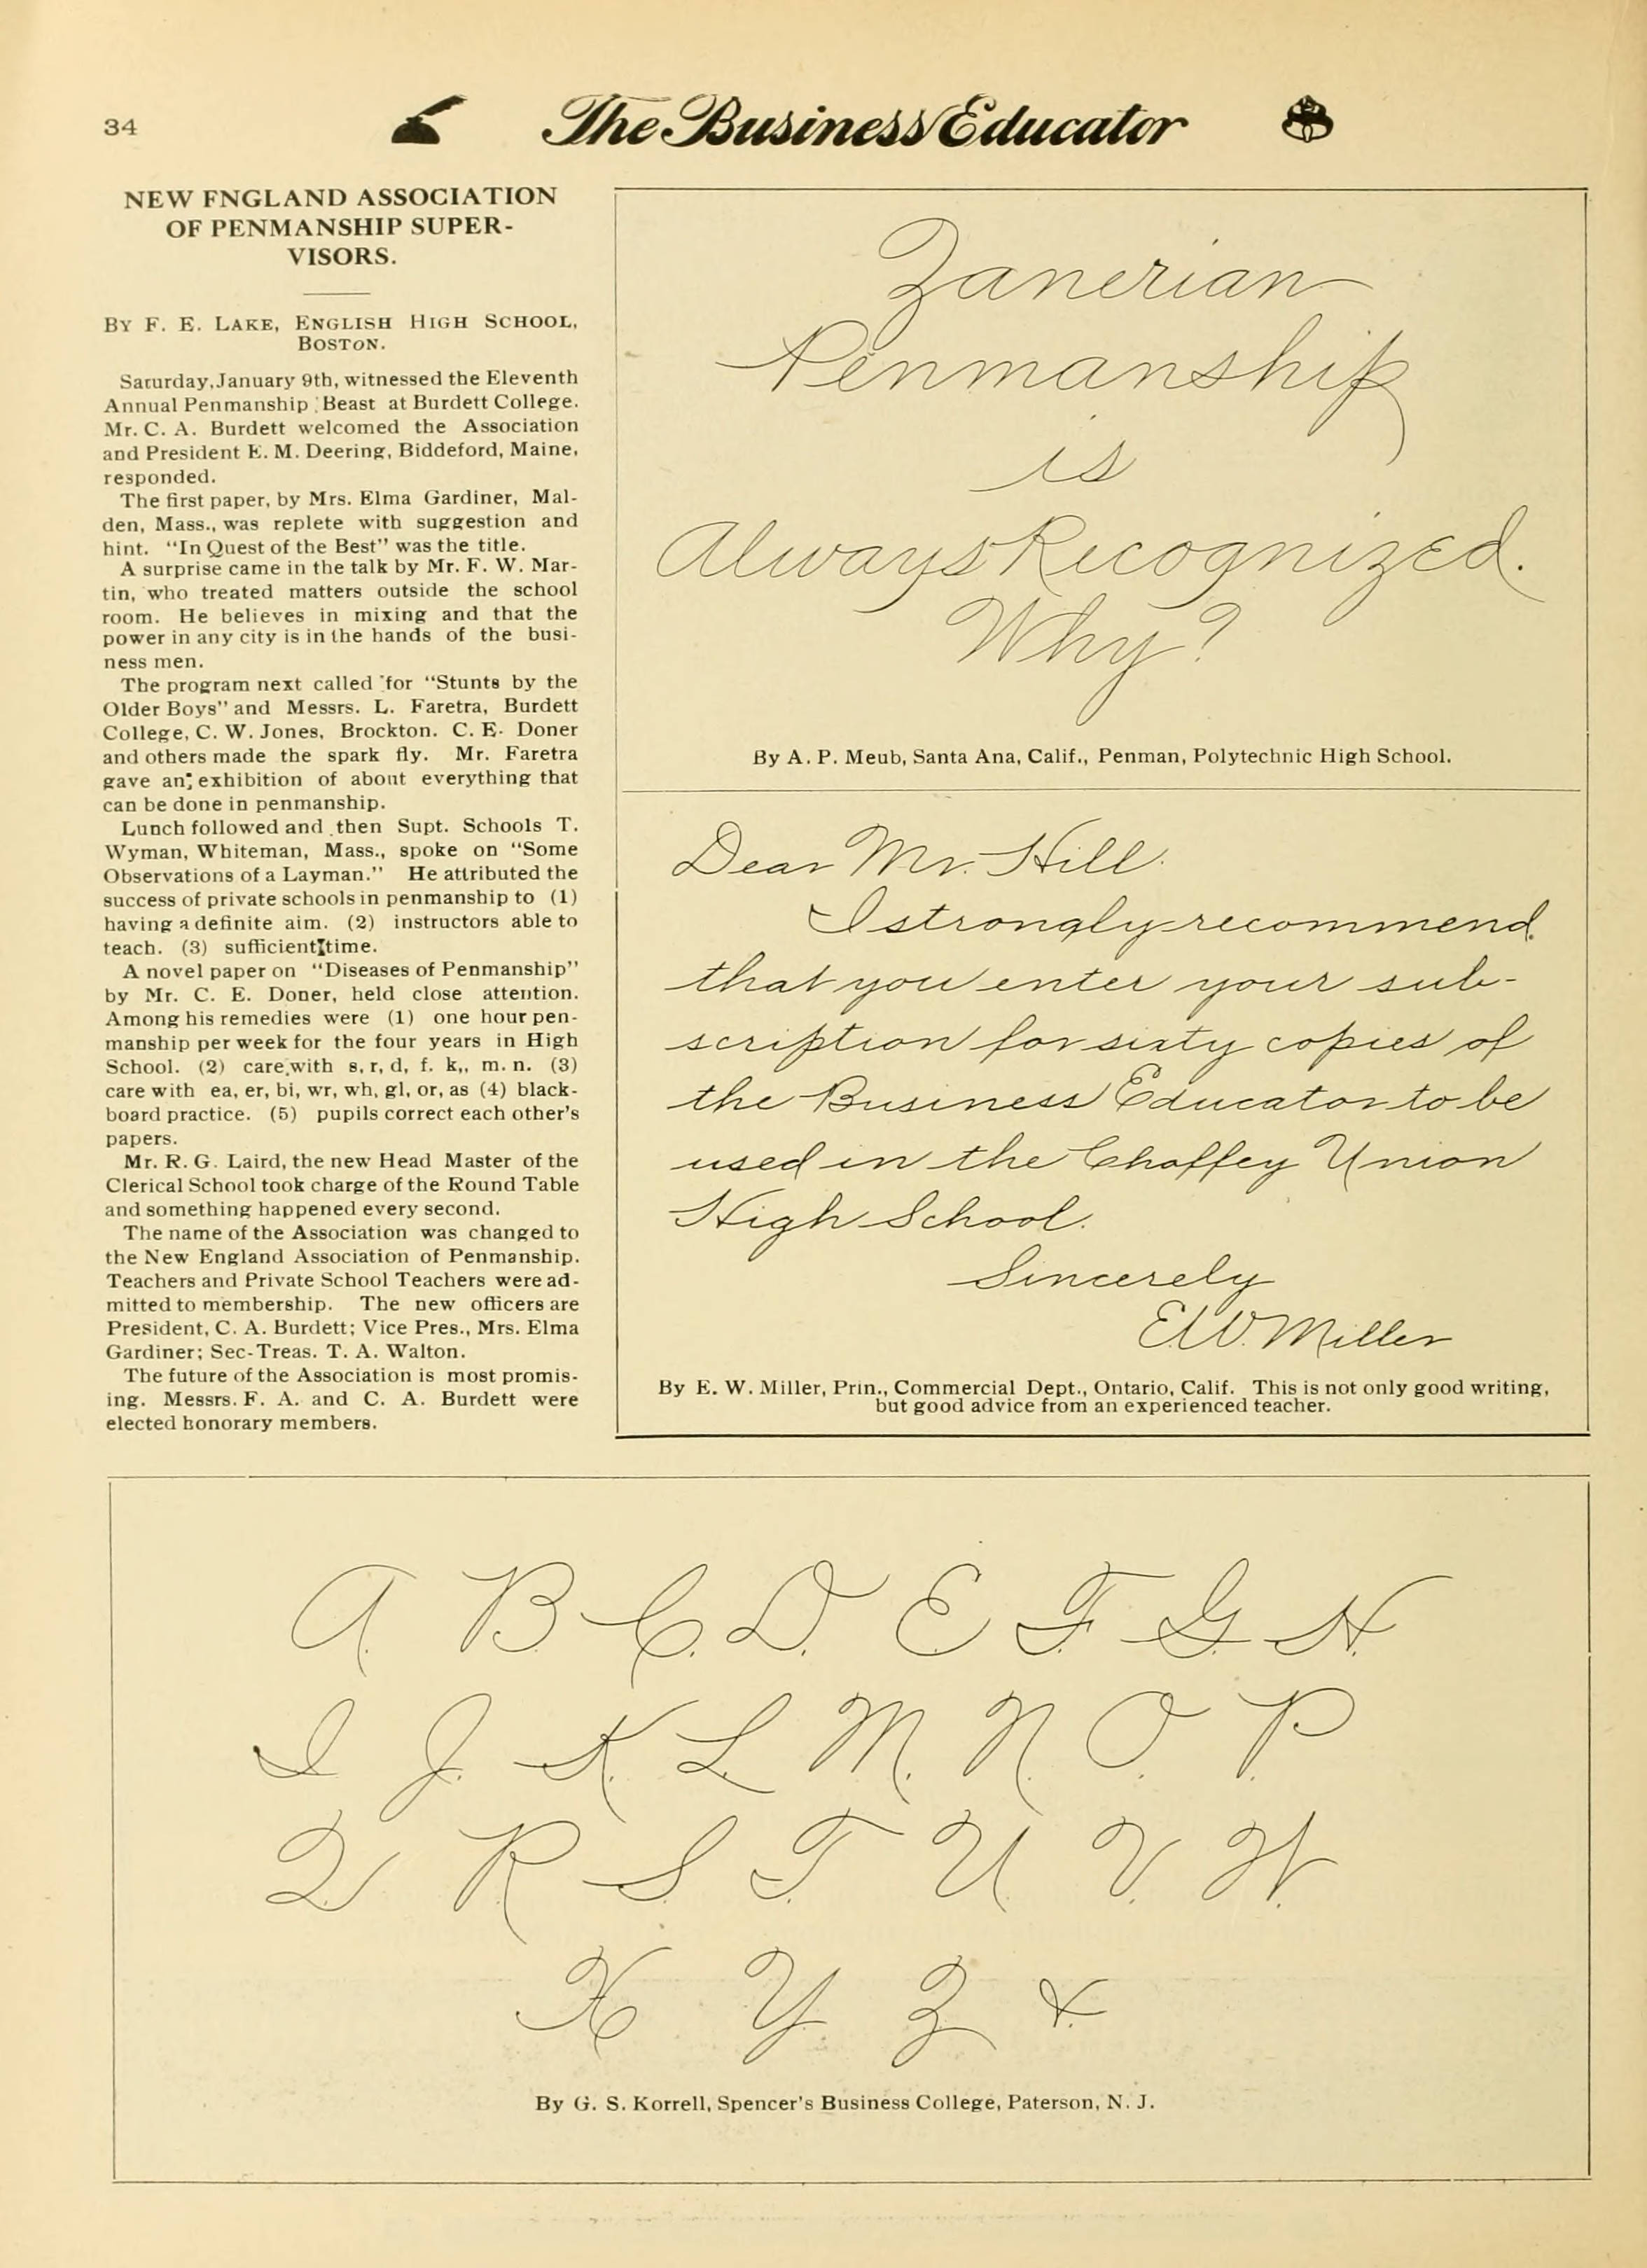 34
The Business Educator
NEW FNGLAND ASSOCIATION
OF PENMANSHIP SUPER-
VISORS.
BY F. E. LAKE, ENGLISH HIGH SCHOOL,
BOSTON.
Saturday, January 9th, witnessed the Eleventh
Annual Penmanship Beast at Burdett College.
Mr. C. A. Burdett welcomed the Association
and President E. M. Deering, Biddeford, Maine,
responded.
The first paper, by Mrs. Elma Gardiner, Mal-
den, Mass., was replete with suggestion and
hint. "In Quest of the Best" was the title.
A surprise came in the talk by Mr. F. W. Mar-
tin, who treated matters outside the school
room. He believes in mixing and that the
power in any city is in the hands of the busi-
ness men.
The program next called for "Stunts by the
Older Boys" and Messrs. L. Faretra, Burdett
College, C. W. Jones, Brockton. C. E. Doner
and others made the spark fly. Mr. Faretra
gave an exhibition of about everything that
can be done in penmanship.
Lunch followed and then Supt. Schools T.
Wyman, Whiteman, Mass., spoke on "Some
Observations of a Layman." He attributed the
success of private schools in penmanship to (1)
having a definite aim. (2) instructors able to
teach. (3) sufficient time.
A novel paper on "Diseases of Penmanship"
by Mr. C. E. Doner, held close attention.
Among his remedies were (1) one hour pen-
manship per week for the four years in High
School. (2) care with s, r, d, f. k,, m. n. (3)
care with ea, er, bi, wr, wh, gl, or, as (4) black-
board practice. (5) pupils correct each other's
papers.
Mr. R. G. Laird, the new Head Master of the
Clerical School took charge of the Round Table
and something happened every second.
The name of the Association was changed to
the New England Association of Penmanship.
Teachers and Private School Teachers were ad-
mitted to membership. The new officers are
President, C. A. Burdett; Vice Pres., Mrs. Elma
Gardiner; Sec-Treas. T. A. Walton.
The future of the Association is most promis-
ing. Messrs. F. A. and C. A. Burdett were
elected honorary members.
Zanerian
Penmanship
is
Always Recognized.
Why?
By A. P. Meub, Santa Ana, Calif., Penman, Polytechnic High School.
Dear Mr. Hill.
I strongly recommend
that you enter your sub-
scription for sixty copies of
the Business Educator to be
used in the Chaffey Union
High School.
Sincerely
E.W. Miller
By E. W. Miller, Prin., Commercial Dept., Ontario, Calif. This is not only good writing,
but good advice from an experienced teacher.
A. B. C. D. E F. G. H.
I J. K. L M. N. O. P.
Q R S. T. U V. W.
X Y. Z &.
By G. S. Korrell, Spencer's Business College, Paterson, N. J.